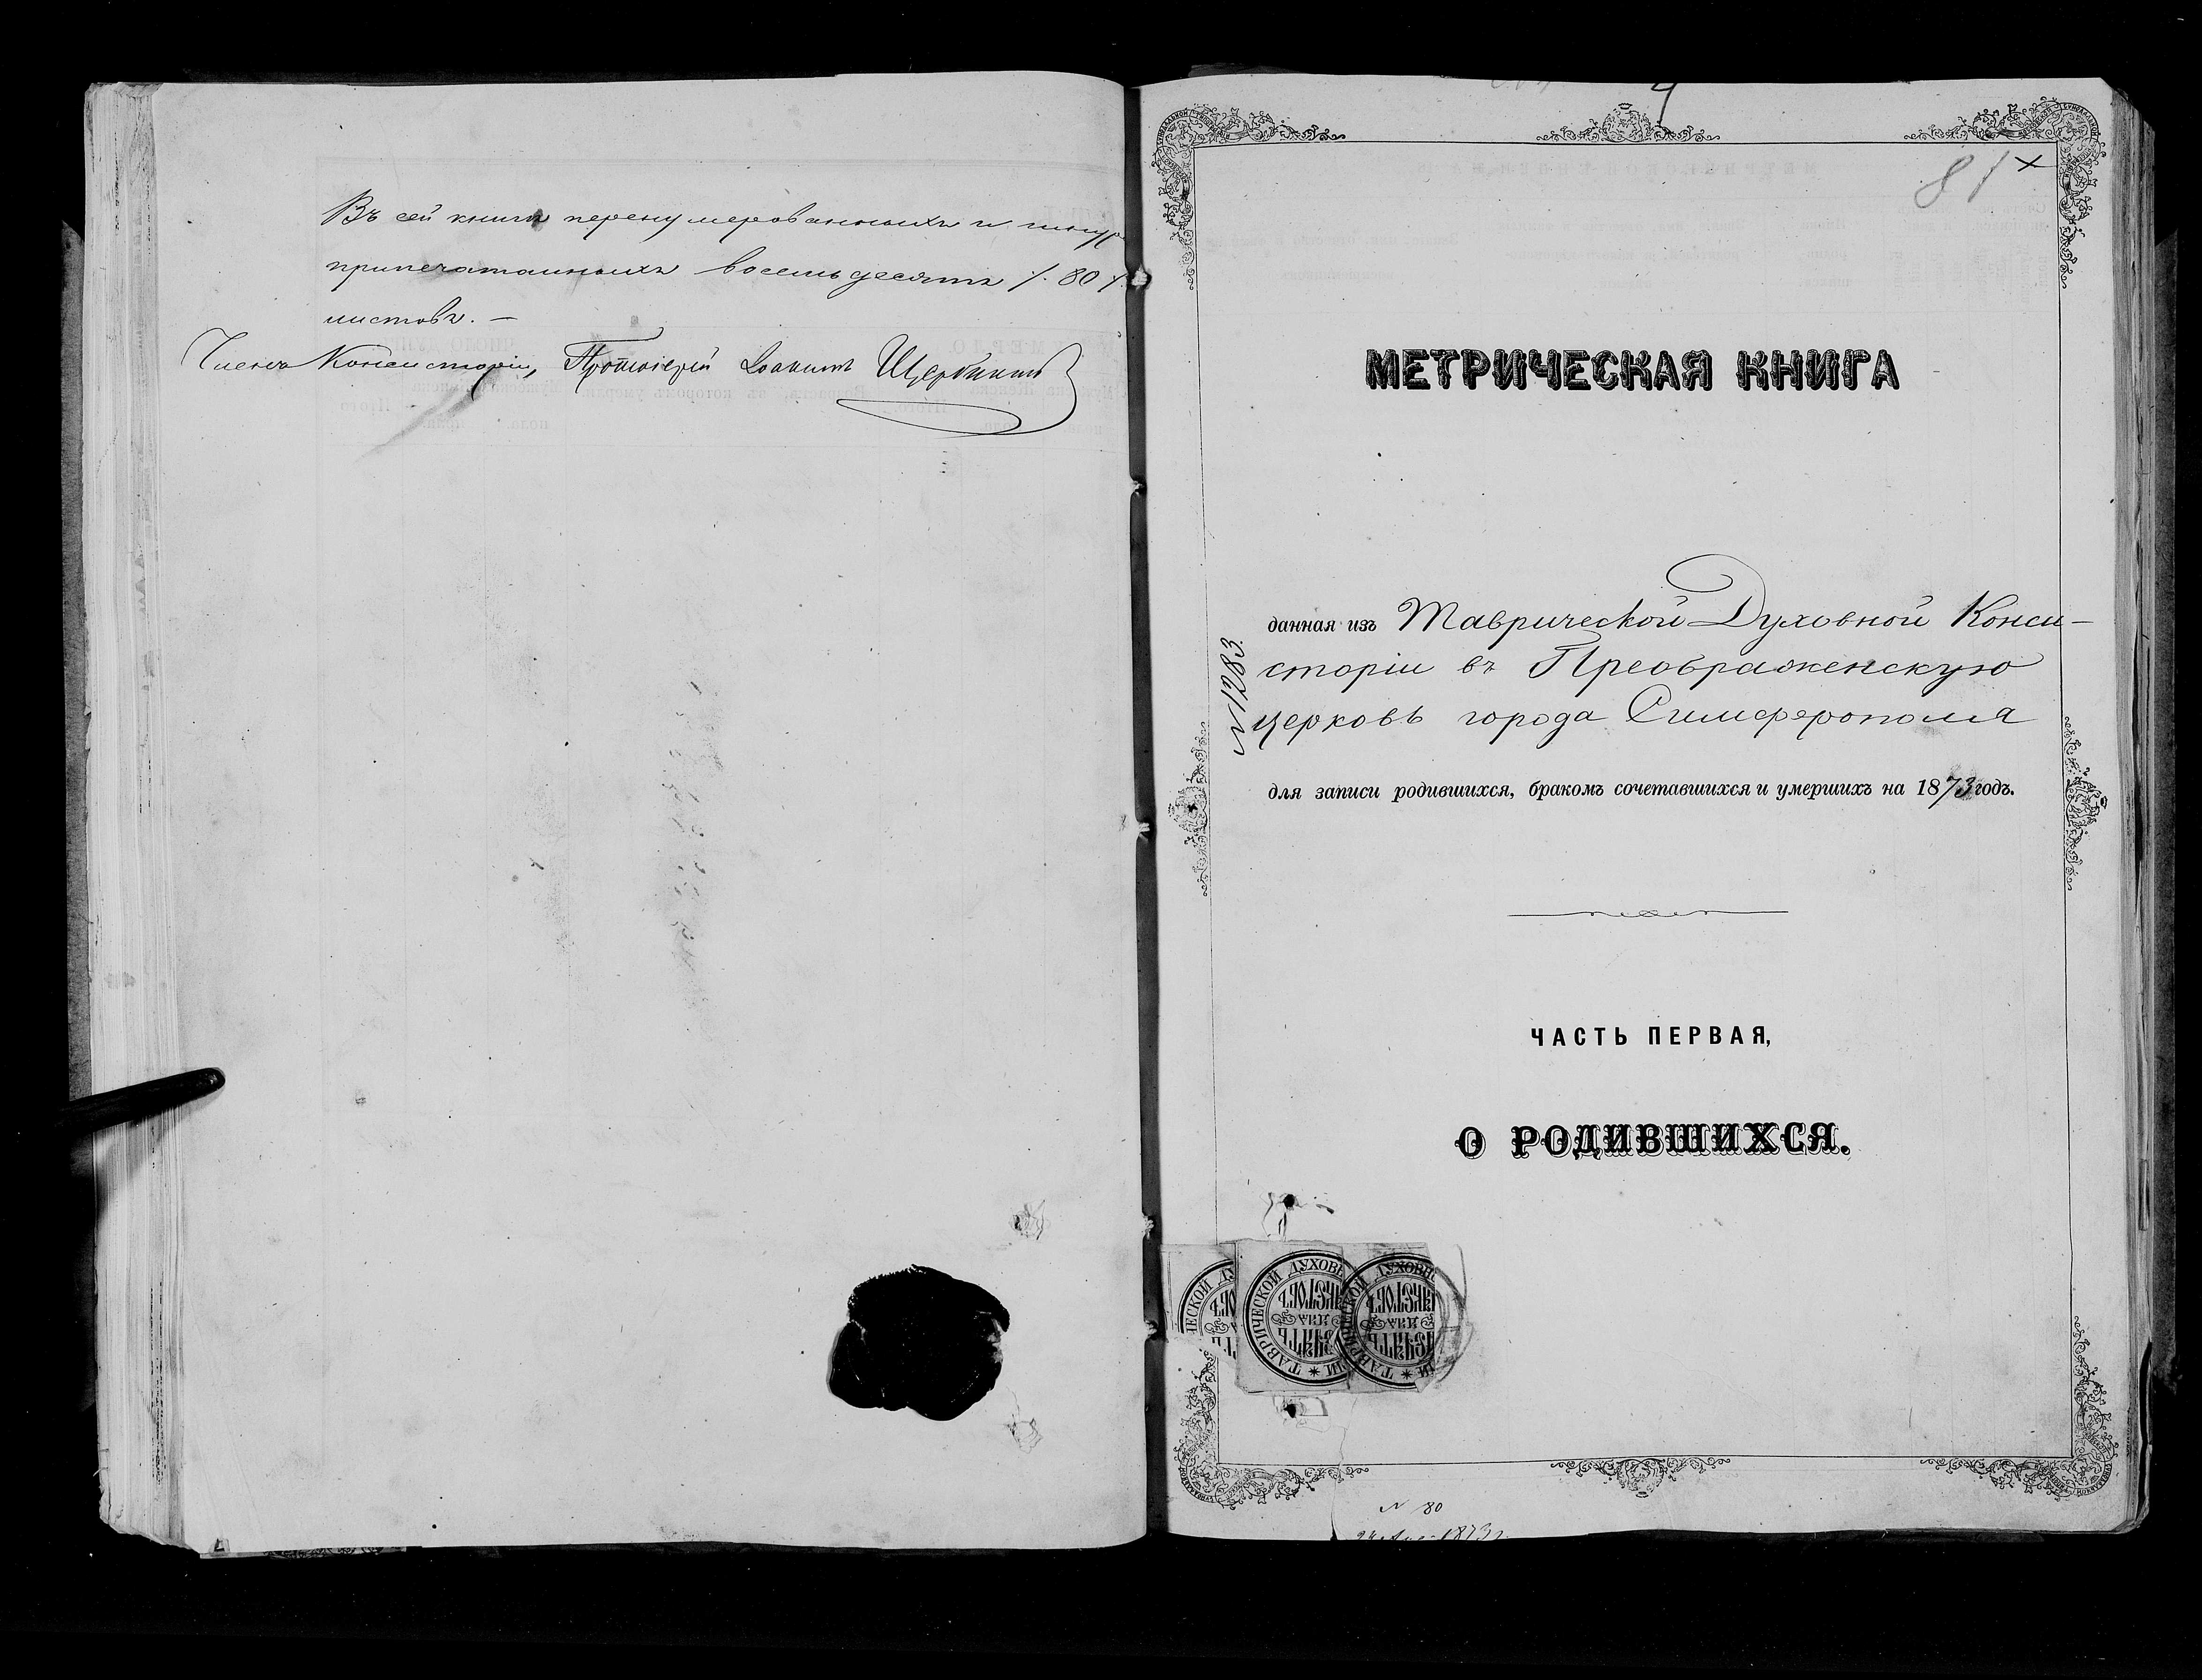 Въ сей книги перенумерованныхъ и шнур
припечатанныхъ восемьдесятъ /. 80 /.
листовъ. —
Членъ Консисторіи, Протоіерей Іоакимъ Щербининъ
81 ×
МЕТРИЧЕСКАЯ КНИГА
данная изъ Таврической Духовной Конси-
сторіи въ Преображенскую
церковь города Симферополя
N 1283.
для записи родившихся, бракомъ сочетавшихся и умершихъ на 1873 годъ.
ЧАСТЬ ПЕРВАЯ,
О РОДИВШИХСЯ.
ТАВРИЧЕСКОЙ ДУХОВН
N 80
1873 г.